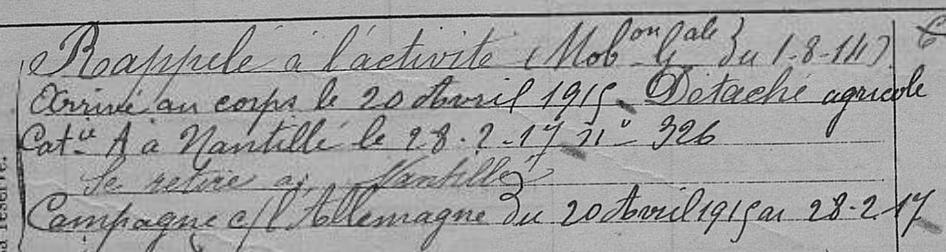 Rappelé à l'activité (Mob^on G^ale du 1-8-14)
Arrivé au corps le 20 Avril 1915. Détaché agricole
Cat^ie A à Nantillé le 28-2-17 n° 326
Se retire à Nantillé
Campagne c/ l'Allemagne du 20 Avril 1915 au 28-2-17